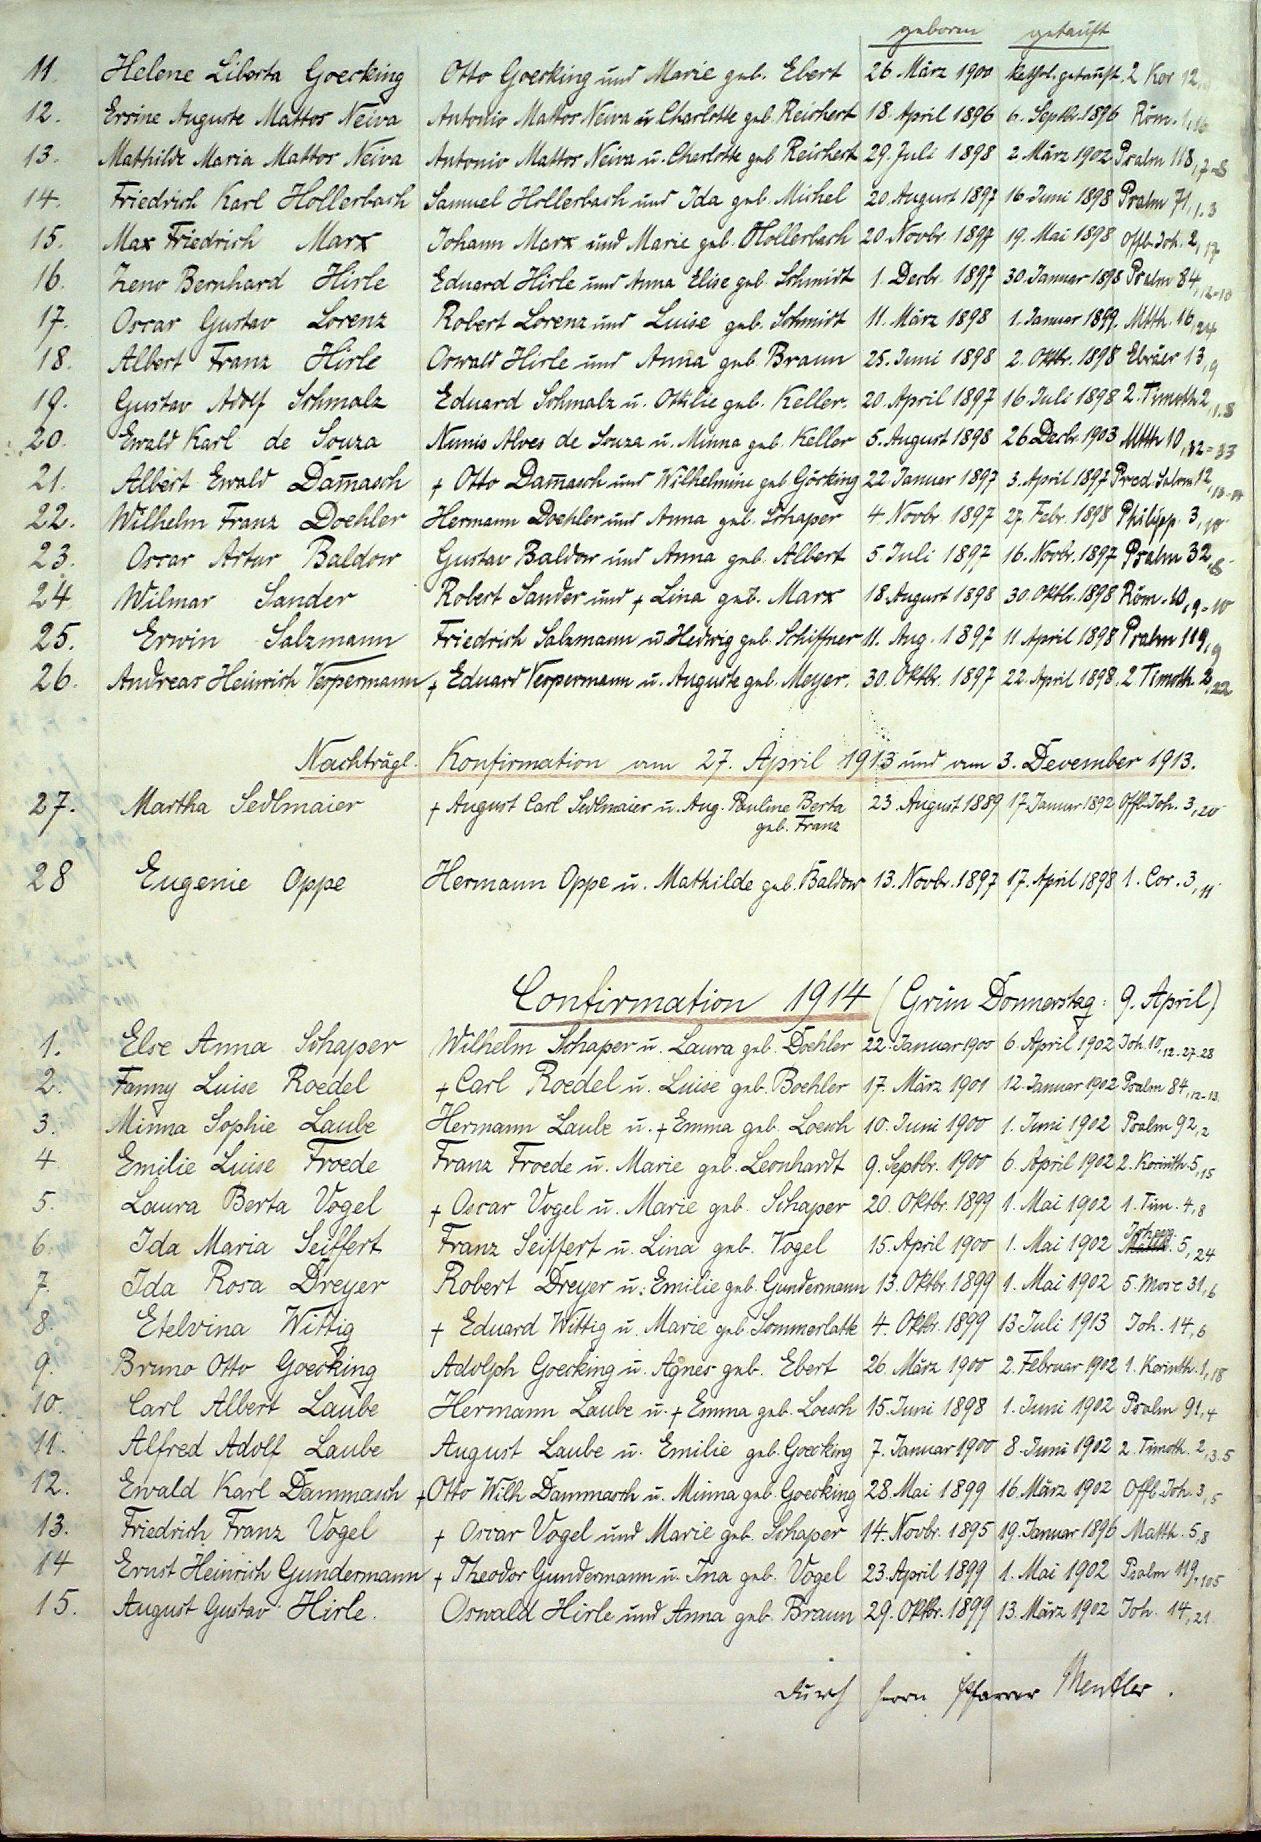 geboren getauft
11. Helene Liberta Goecking Otto Goecking und Marie geb. Ebert 26. März 1900 kathol. getauft. 2 Kor 12,
12. Ersine Auguste Mattos Neiva Antonio Mattos Neiva u. Charlotte geb. Reichert 18. April 1896 6. Septbr. 1896 Röm. 1,16
13. Mathilde Maria Mattos Neiva Antonio Mattos Neiva u. Charlotte geb Reichert 29. Juli 1898 2. März 1902 Psalm 118,7-8
14. Friedrich Karl Hollerbach Samuel Hollerbach und Ida geb. Michel 20. August 1897 16. Juni 1898 Psalm 71,1.3
15. Max Friedrich Marx Johann Marx und Marie geb. Hollerbach 20. Novbr. 1897 19. Mai 1898 Offb. Joh. 2,17
16. Zeno Bernhard Hirle Eduard Hirle und Anna Elise geb. Schmidt 1. Decbr. 1897 30. Januar 1898 Psalm 84,
17. Oscar Gustav Lorenz Robert Lorenz und Luise geb. Schmidt 11. März 1898 1. Januar 1899. Mtth. 16,24
18. Albert Franz Hirle Oswald Hirle und Anna geb. Braun 25. Juni 1898 2. Oktbr. 1898 Ebräer 13,9
19. Gustav Adolf Schmalz Eduard Schmalz u. Ottilie geb. Keller. 20. April 1897 16. Juli 1898 2. Timoth 2,1.8
20. Ewald Karl de Souza Numis Alves de Souza u. Minna geb. Keller 5. August 1898 26. Decbr. 1903 Mtth 10,32-33
21. Albert Ewald Dam̄asch + Otto Dam̄asch und Wilhelmine geb Görking 22. Januar 1897 3. April 1897 Pred. Salom 12,
22. Wilhelm Franz Doehler Hermann Doehler und Anna geb. Schaper 4. Novbr. 1897 27. Febr. 1898 Philipp. 3,10
23. Oscar Artur Baldow Gustav Baldow und Anna geb. Albert 5 Juli 1897 16. Novbr. 1897 Psalm 32,8
24. Wilmar Sander Robert Sander und + Lina geb. Marx 18. August 1898 30. Oktbr. 1898 Röm. 10,9-10
25. Erwin Salzmann Friedrich Salzmann u. Hedwig geb. Schiffner 11. Aug. 1897 11. April 1898 Psalm 119,9
26. Andreas Heinrich Vespermann + Eduard Vespermann u. Auguste geb. Meyer. 30. Oktbr. 1897 22. April 1898. 2 Timoth. 2,22
Nachträgl. Konfirmation am 27. April 1913 und am 3. December 1913.
27. Martha Sedlmaier + August Carl Sedlmaier u. Aug. Pauline Berta 23. August 1889 17 Januar 1892 Offb Joh. 3,20
geb. Franz
28 Eugenie Oppe Hermann Oppe u. Mathilde geb. Baldow 13. Novbr. 1897 17. April 1898 1. Cor. 3,11
Confirmation 1914 (Grün Donnerstag: 9. April)
1. Else Anna Schaper Wilhelm Schaper u. Laura geb. Doehler 22. Januar 1900 6. April 1902 Joh. 10,12.27.28
2. Fanny Luise Roedel + Carl Roedel u. Luise geb. Boehler 17. März 1901 12. Januar 1902 Psalm 84,12-13
3. Minna Sophie Laube Hermann Laube u. + Emma geb. Loesch 10. Juni 1900 1. Juni 1902 Psalm 92,2
4 Emilie Luise Froede Franz Froede u. Marie geb. Leonhardt 9. Septbr. 1900 6. April 1902 2. Korinth. 5,15
5. Laura Berta Vogel + Oscar Vogel u. Marie geb. Schaper 20. Oktbr. 1899 1. Mai 1902 1. Tim. 4,8
6. Ida Maria Seiffert Franz Seiffert u. Lina geb. Vogel 15. April 1900 1. Mai 1902 5,24
7. Ida Rosa Dreyer Robert Dreyer u. Emilie geb. Gundermann 13. Oktbr. 1899 1. Mai 1902 5. Mose 31,6
8. Etelvina Wittig + Eduard Wittig u. Marie geb. Sommerlatte 4. Oktbr. 1899 13 Juli 1913 Joh. 14,6
9. Bruno Otto Goecking Adolph Goecking u. Agnes geb. Ebert 26. März 1900 2. Februar 1902 1. Korinth. 1,18
10. Carl Albert Laube Hermann Laube u. + Emma geb. Loesch 15. Juni 1898 1. Juni 1902 Psalm 91,4
11. Alfred Adolf Laube August Laube u. Emilie geb. Goecking 7. Januar 1900 8. Juni 1902 2. Timoth. 2,3.5
12. Ewald Karl Dammasch + Otto Wilh Dammasch u. Minna geb. Goecking 28. Mai 1899 16. März 1902 Offb. Joh. 3,5
13. Friedrich Franz Vogel + Oscar Vogel und Marie geb. Schaper 14. Novbr. 1895 19. Januar 1896 Matth. 5,8
14 Ernst Heinrich Gundermann + Theodor Gundermann u. Ina geb. Vogel 23. April 1899 1. Mai 1902 Psalm 119,105
15. August Gustav Hirle. Oswald Hirle und Anna geb. Braun 29. Oktbr. 1899 13. März 1902 Joh. 14,21
durch Herrn Pfarrer